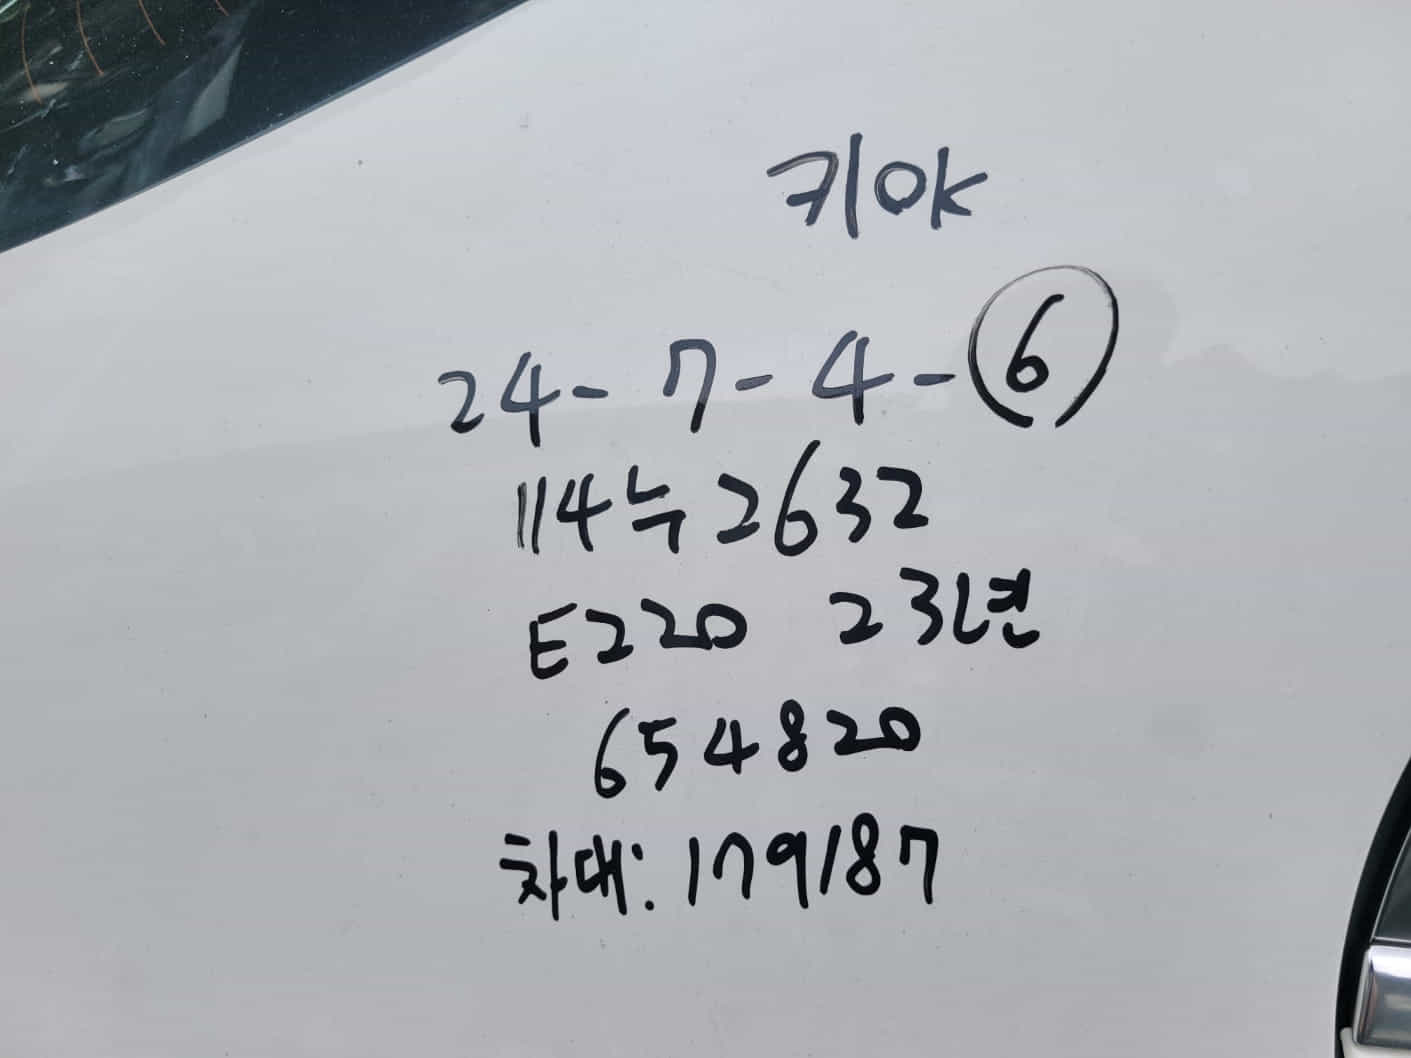 키OK
24-7-4-⑥
114누2632
E220 23년
654820
차대: 179187